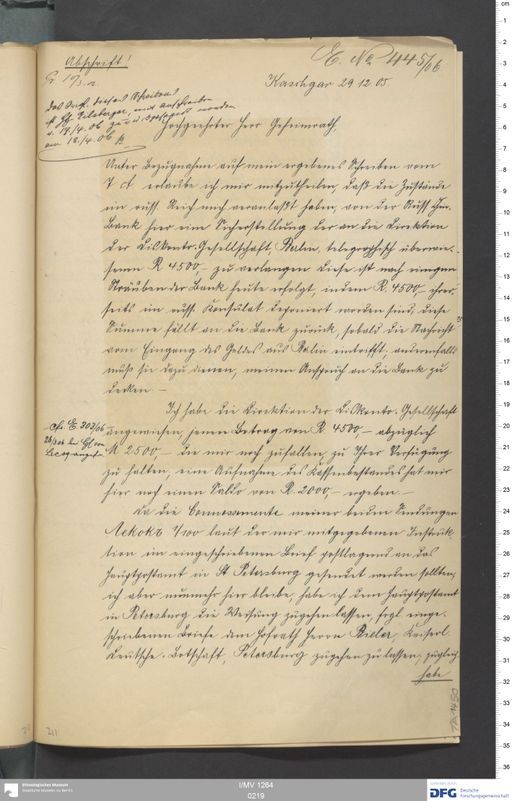 Abschrift!
E. No 445/06
Kaschgar 29 12 05.
Hochgeehrter Herr Geheimrath,
Unter Bezugnahme auf mein ergebenes Schreiben vom
7 erlaube ich mir mitzutheilen, daß die Zustände
im russ. Reich mich veranlaßt haben, von der Russ. Chin.
Bank hier eine Sicherstellung der an die Direktion
der Diskonto-Gesellschaft, Berlin, telegraphisch überwie-
senen R 4500,- zu verlangen. Diese ist nach einigem
Sträuben der Bank heute erfolgt, indem R. 4500,- ihrer-
seits im russ. Konsulat deponiert worden sind; diese
Summe fällt an die Bank zurück, sobald die Nachricht
vom Eingang des Geldes aus Berlin eintrifft; andernfalls
muß sie dazu dienen, meinen Anspruch an die Bank zu
decken. -
Ich habe die Direktion der Diskonto-Gesellschaft
cfr. E 303/06
angewiesen, jenen Betrag von R 4500,- abzüglich
M 2500,- die mir noch zufallen, zu Ihrer Verfügung
zu halten; eine Aufnahme des Kassenbestandes hat mir
hier noch einen Saldo von R. 2000,- ergeben. -
Da die Connossemente meiner beiden Sendungen
1/100 laut der mir mitgegebenen Instruk-
tion im eingeschriebenen Brief postlagernd an das
Hauptpostamt in St Petersburg gesendet werden sollten,
ich aber nunmehr hier bleibe, habe ich dem Hauptpostamt
in Petersburg die Weisung zugehen lassen, einge-
schriebenen Briefe dem Hofrath Herrn Bieler, Kaiserl.
Deutsche Botschaft, Petersburg zugehen zu lassen; zugleich
habe
211
I/MV 1264
0219
Ethnologisches Museum
Staatliche Museen zu Berlin
DFG Deutsche
Forschungsgemeinschaft